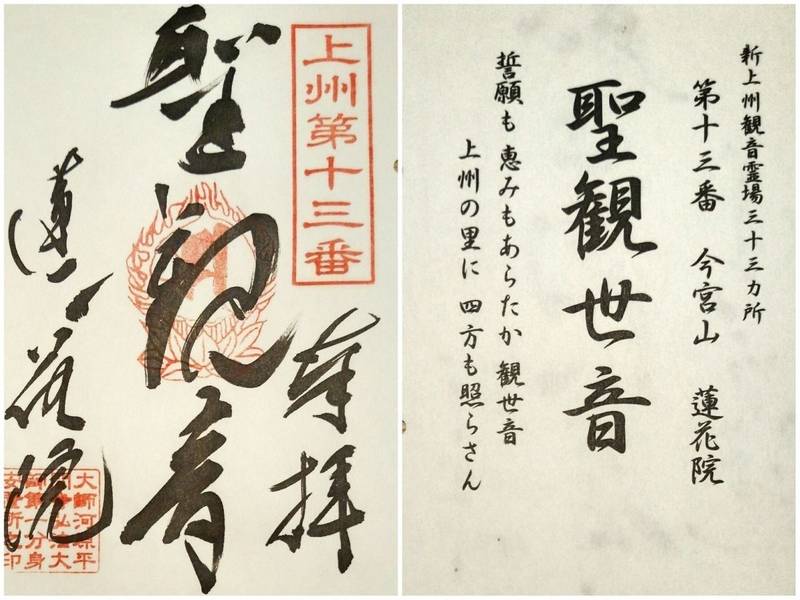 上州第十三番
奉拝
聖観音
蓮花院
新上州観音霊場三十三カ所
第十三番 今宮山 蓮花院
聖観世音
誓願も恵みもあらたか観世音
上州の里に四方も照らさん